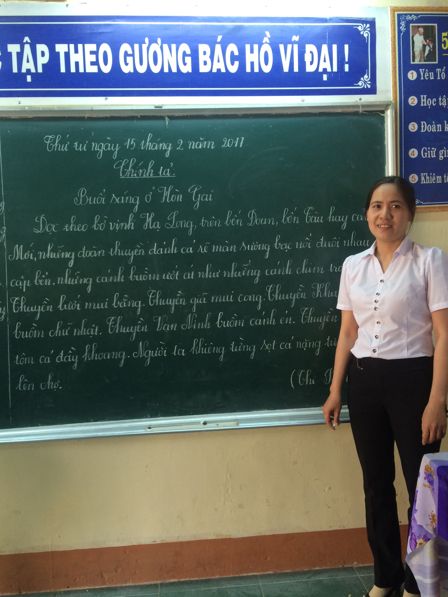 TẬP THEO GƯƠNG BÁC HỒ VĨ ĐẠI !
5
1 Yêu Tổ
2 Học tậ
3 Đoàn k
4 Giữ gì
5 Khiêm t
Thứ tư ngày 15 tháng 2 năm 2017
Chính tả:
Buổi sáng ở Hòn Gai
Dọc theo bờ vịnh Hạ Long, trên bến Đoan, bến Tàu hay cả
Mới, những đoàn thuyền đánh cá rẽ màn sương bạc nối đuôi nhau
cập bến. những cánh buồm ướt át như những cánh chim
Thuyền lưới mui bằng. Thuyền giã mui cong. Thuyền Khu
buồm chữ nhật. Thuyền Vạn Ninh buồm cánh én. Thuyền
tôm cá đầy khoang. Người ta khiêng từng sọt cá nặng
lên chợ.
(Thi